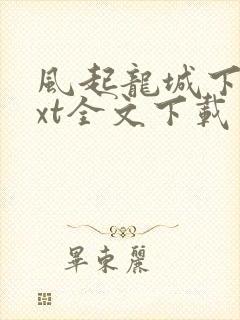 風起龍城下
xt全文下載
畢東麗